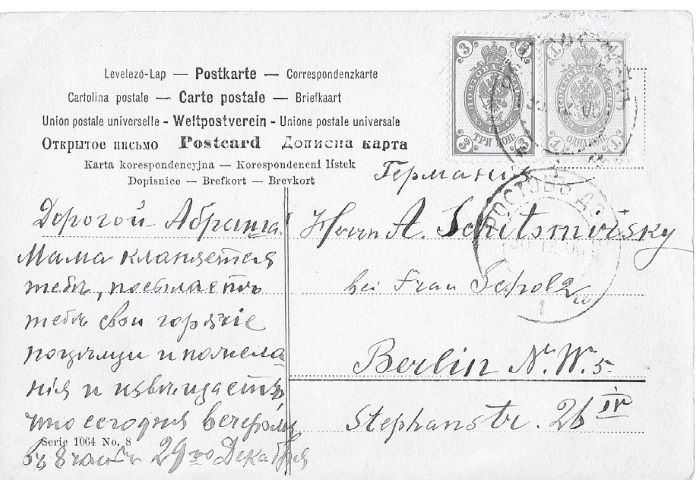 Levelező-Lap — Postkarte — Correspondenzkarte
Cartolina postale — Carte postale — Briefkaart
Union postale universelle - Weltpostverein - Unione postale universale
Открытое письмо Postcard Дописна карта
Karta korespondencyjna — Korespondenční lístek
Dopisnice — Brefkort — Brevkort
3 3
ТРИ КОП.
1 1
Германия
РОСТОВЪ Д
Дорогой Абраша.
Мама кланяется
тебѣ, посылаетъ
тебѣ свои горячіе
поцѣлуи и пожела
нія и извѣщаетъ
что сегодня вечеромъ
въ 8 29го Декабря
Serie 1064 No. 8
Herrn A.
bei Frau Scholz
Berlin N.W. 5
Stephanstr. 26 IV